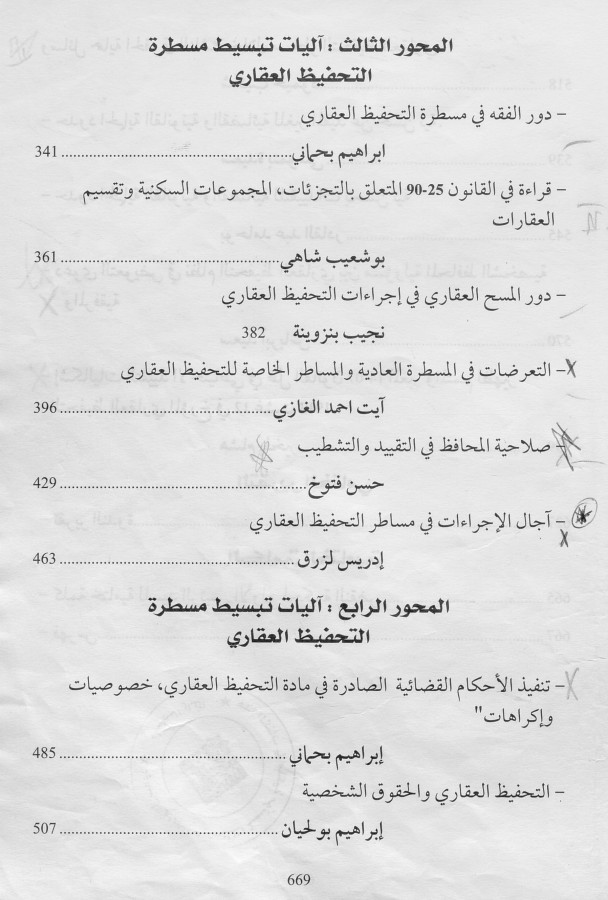 المحور الثالث : آليات تبسيط مسطرة
التحفيظ العقاري
– دور الفقه في مسطرة التحفيظ العقاري
ابراهيم بحماني ........................................ 341
– قراءة في القانون 25-90 المتعلق بالتجزئات، المجموعات السكنية وتقسيم
العقارات
بوشعيب شاهي ........................................ 361
– دور المسح العقاري في إجراءات التحفيظ العقاري
نجيب بنزوينة 382
– التعرضات في المسطرة العادية والمساطر الخاصة للتحفيظ العقاري
آيت احمد الغازي ........................................ 396
– صلاحية المحافظ في التقييد والتشطيب
حسن فتوخ ........................................ 429
– آجال الإجراءات في مساطر التحفيظ العقاري
إدريس لزرق ........................................ 463
المحور الرابع : آليات تبسيط مسطرة
التحفيظ العقاري
– تنفيذ الأحكام القضائية الصادرة في مادة التحفيظ العقاري، خصوصيات
وإكراهات"
إبراهيم بحماني ........................................ 485
– التحفيظ العقاري والحقوق الشخصية
إبراهيم بولحيان ........................................ 507
669